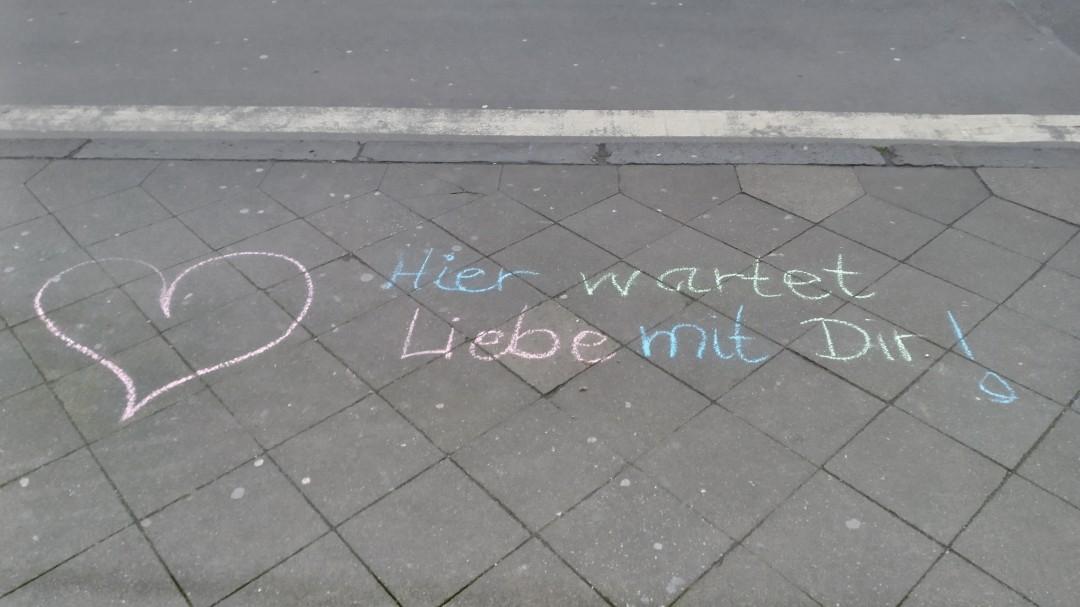 Hier wartet
Liebe mit Dir!